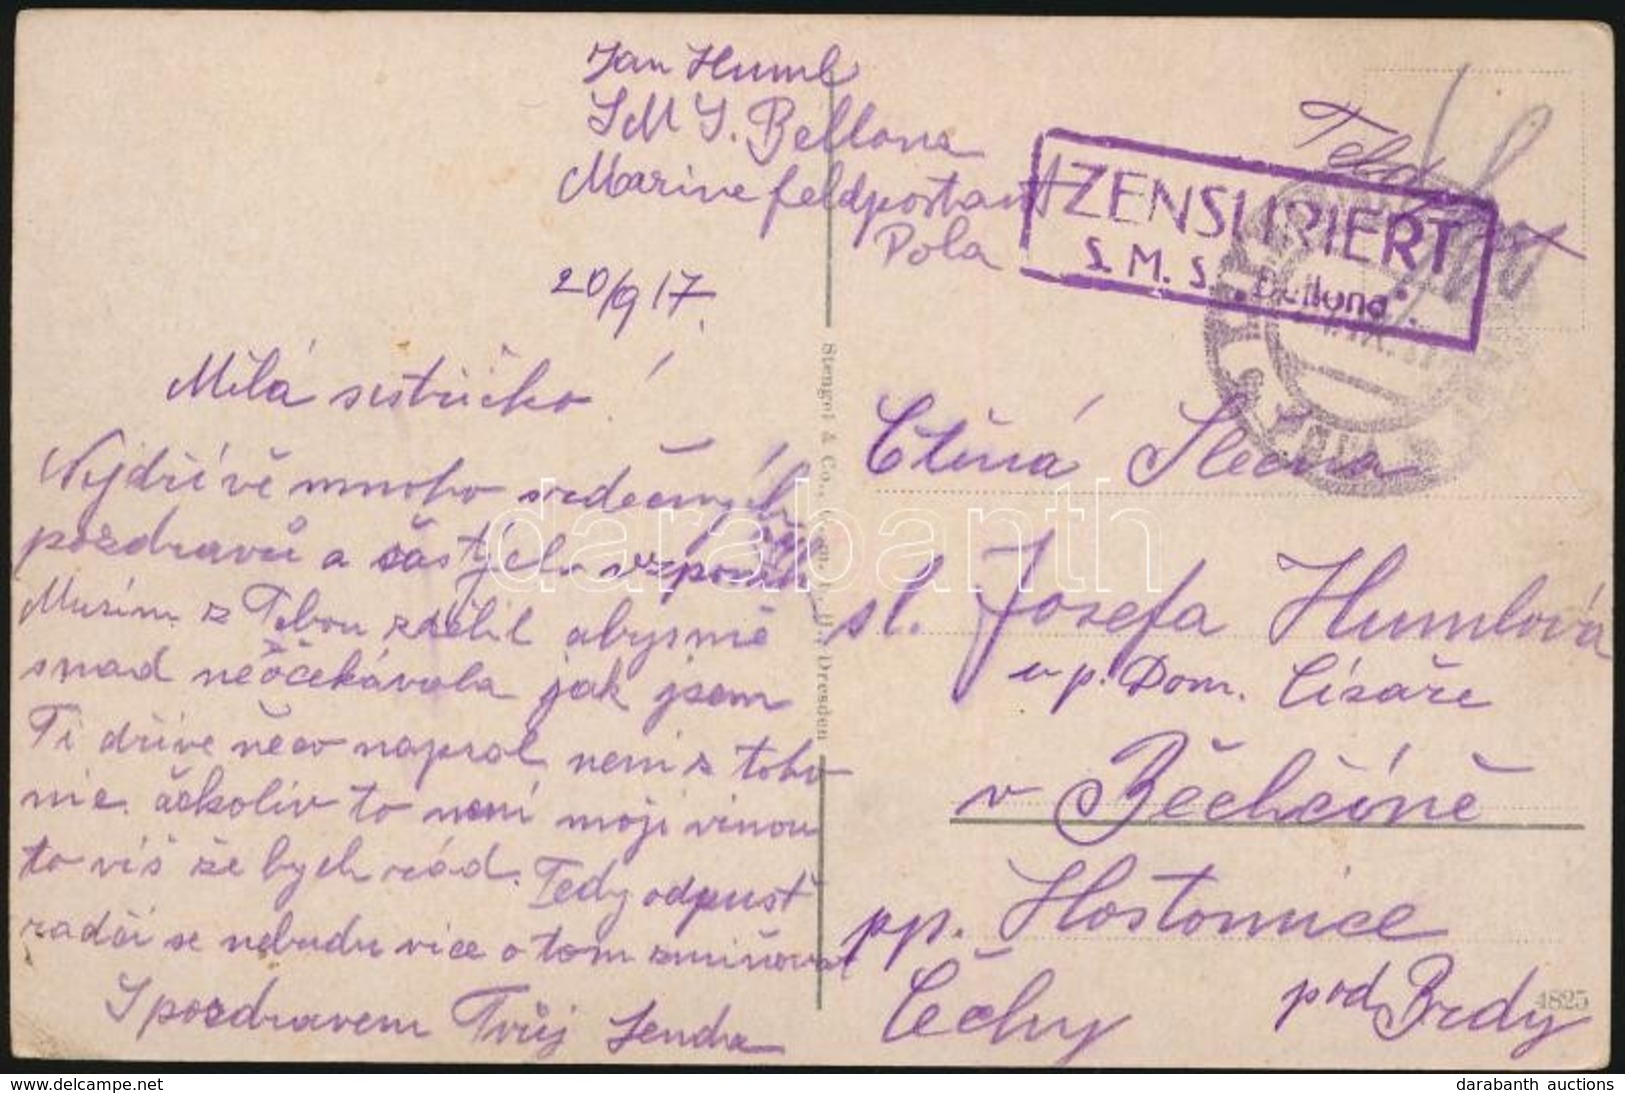 Jan Huml
S M S. Bellona
Marine feldpostamt
Pola
20/9 17.
Feldpost
ZENSURIERT
S. M. S. „Bellona".
Milá sestřičko!
Nejdřívě mnoho srdečných
pozdravů a častých vzpomínek
Musím z Tebou sdělil abysmě
snad neočekávala jak jsem
Ti dříve něco napsal není z toho
nic. ačkoliv to není moji vinou
to víš že bych rád. Tedy odpusť
radči se nebudu vice o tom zmiňovat
S pozdravem Tvůj Jenda
Stengel & Co., Dresden
Ctěná Slečna
sl. Josefa Humlová
u p. Dom. Císaře
v Běchčíně
pp. Hostomice
pod Brdy
Čechy
4825
darabanth
darabanth auctions
www.delcampe.net